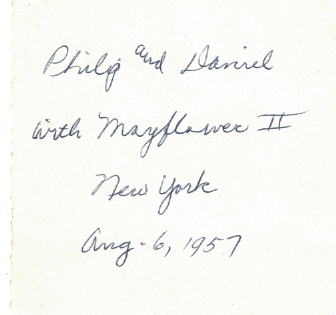 Philip and Daniel
with Mayflower II
New York
Aug. 6, 1957